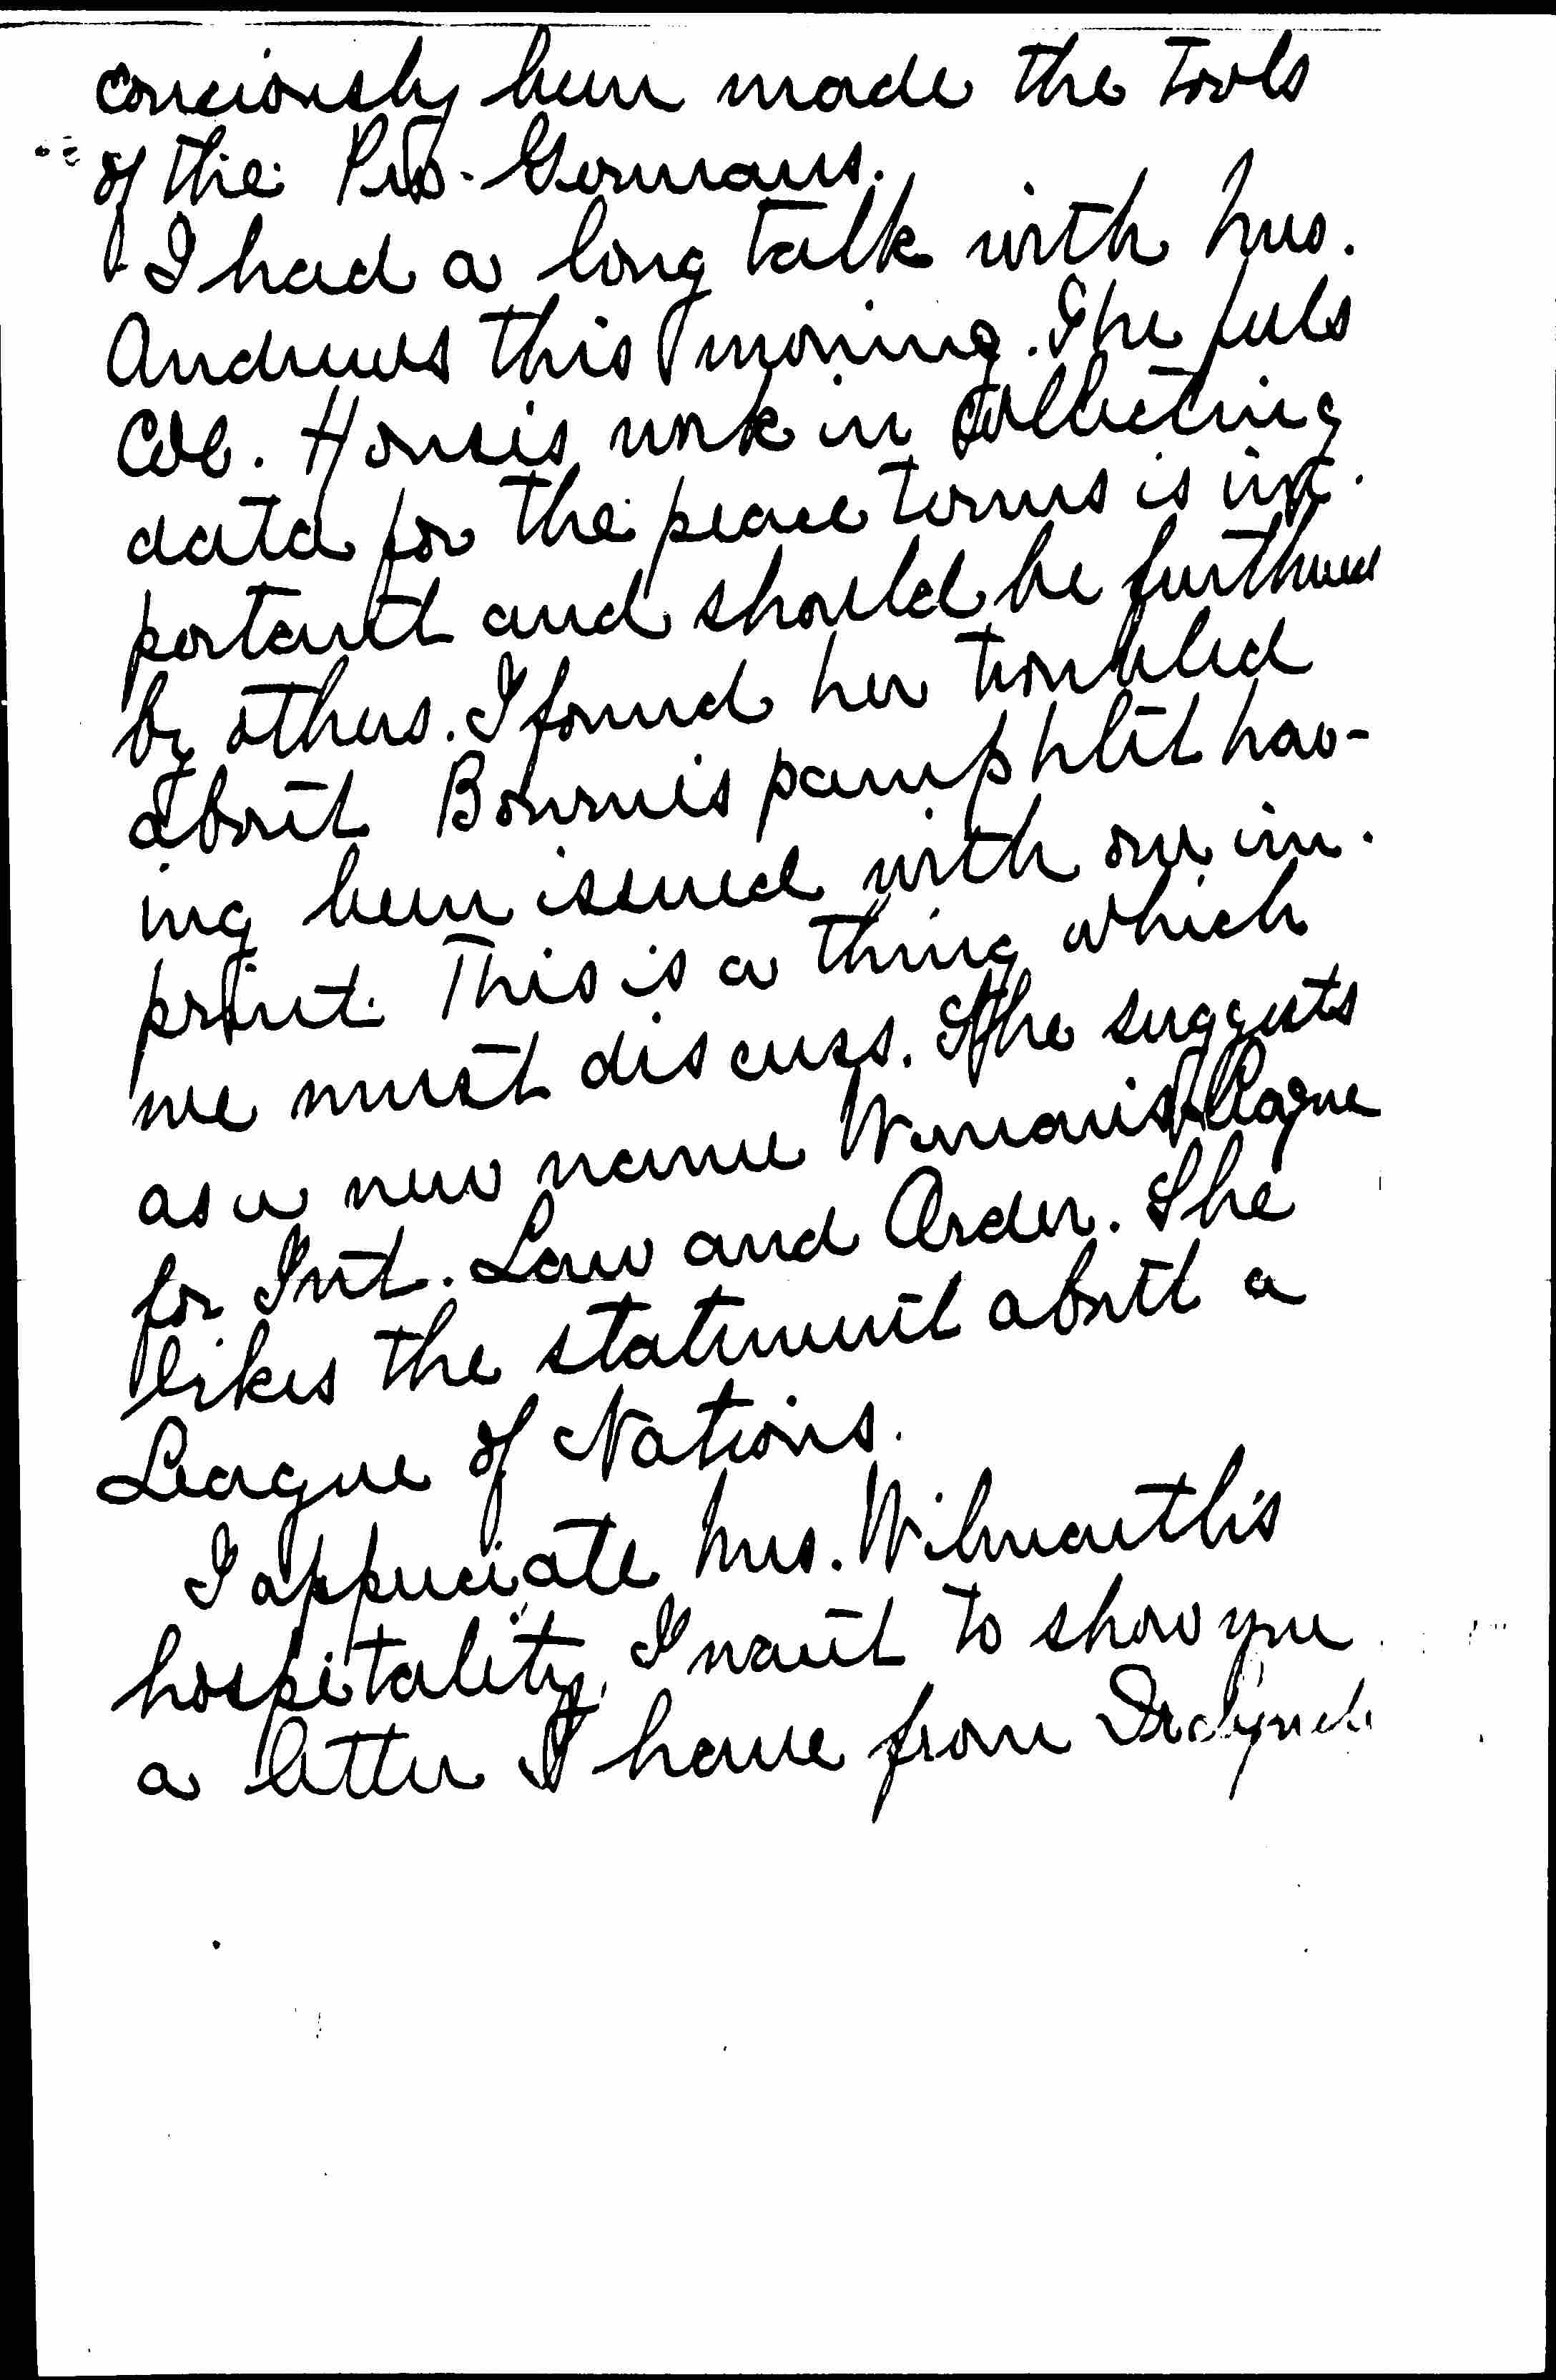 conciously been made the tools
of the Pro-Germans.
I had a long talk with Mrs.
Andrews this morning. She feels
Col. House's work in collecting
data for the peace terms is im-
portant and should be furthered
by others. I found her troubled
about Bourne's pamphlet hav-
ing been issued with our im-
print. This is a thing which
we must discuss. She suggests
as a new name Woman's League
for Int. Law and Order. She
likes the statement about a
League of Nations.
I appreciate Mrs. Wilmarth's
hospitality. I want to show you
a letter I have from Dr Lynch